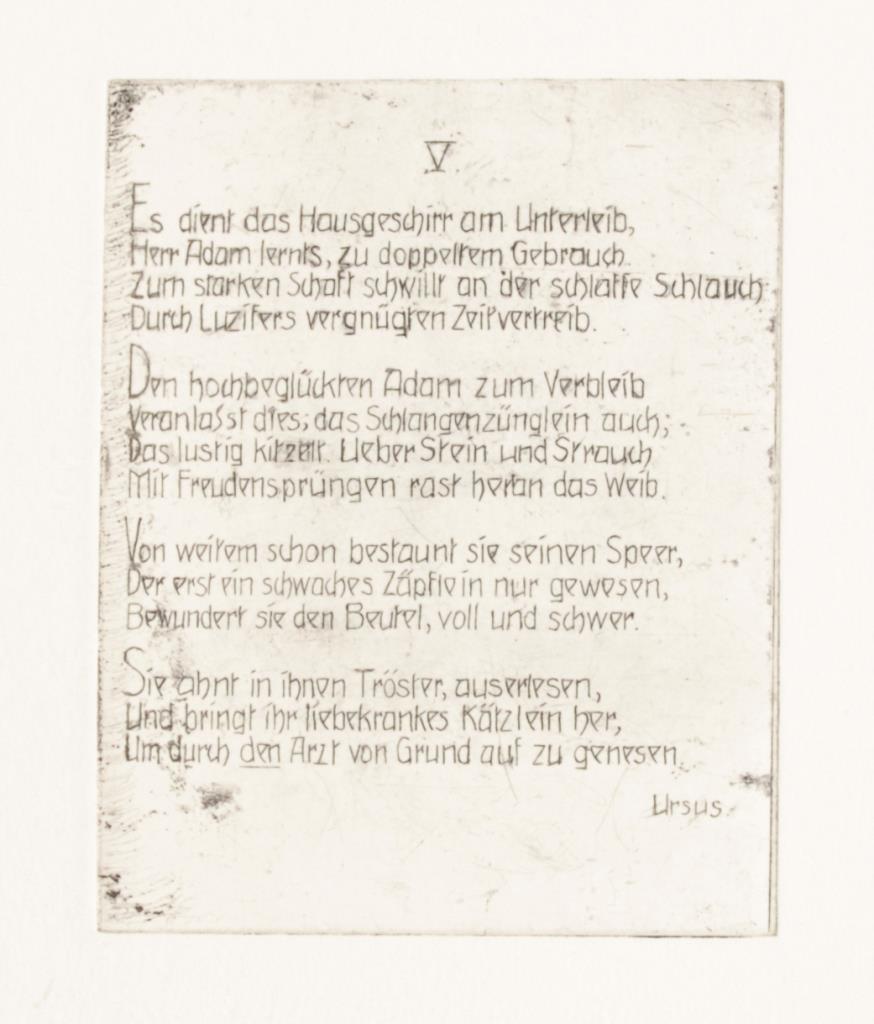 V.
Es dient das Hausgeschirr am Unterleib,
Herr Adam lernts, zu doppeltem Gebrauch.
Zum starken Schaft schwillt an der schlaffe Schlauch
Durch Luzifers vergnügten Zeitvertreib.
Den hochbeglückten Adam zum Verbleib
Veranlasst dies; das Schlangenzünglein auch;
Das lustig kitzelt. Ueber Stein und Strauch
Mit Freudensprüngen rast heran das Weib.
Von weitem schon bestaunt sie seinen Speer,
Der erst ein schwaches Zäpflein nur gewesen,
Bewundert sie den Beutel, voll und schwer.
Sie ahnt in ihnen Tröster, auserlesen,
Und bringt ihr liebekrankes Kätzlein her,
Um durch den Arzt von Grund auf zu genesen.
Ursus.